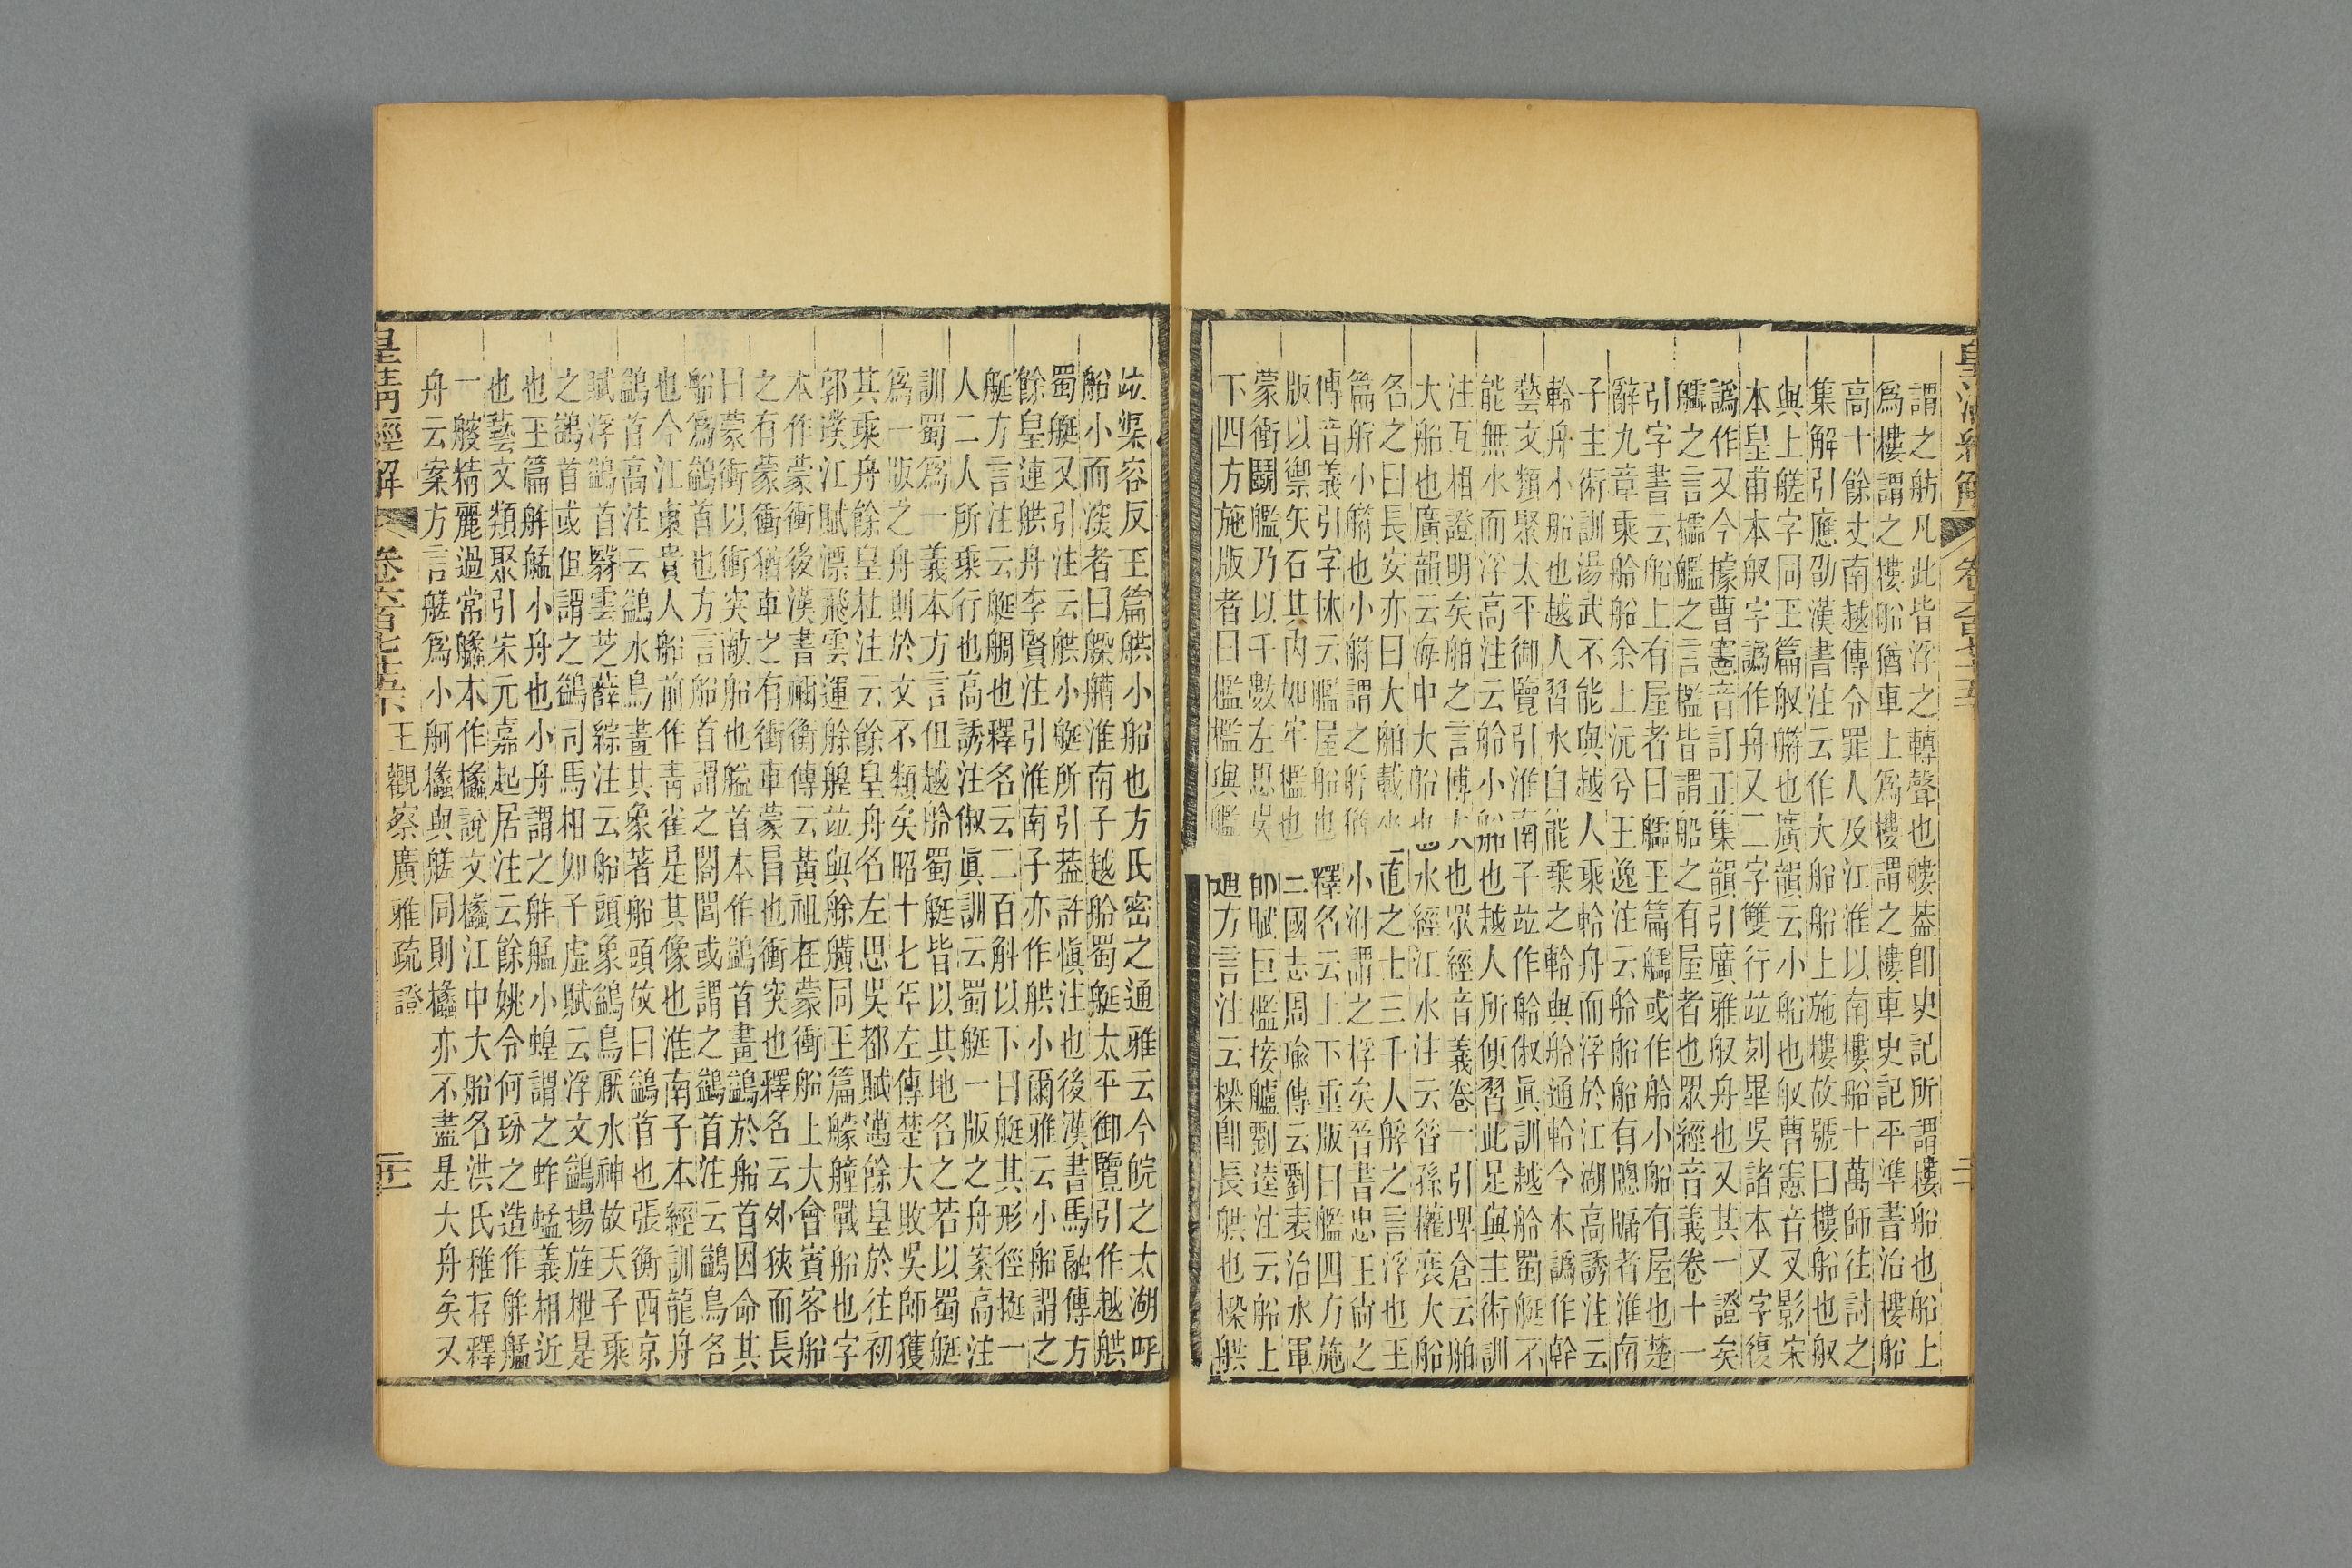 謂之舫凡此皆浮之轉聲也艛葢卽史記所謂樓船也船上
爲樓謂之樓船猶車上爲樓謂之樓車史記平準書治樓船
高十餘丈南越傳令罪人及江淮以南樓船十萬師往討之
集解引應劭漢書注云作大船船上施樓故號曰樓船也䑡
與上艖字同玉篇䑡艒也廣韻云小船也䑡曹憲音叉影宋
本皇甫本䑡字譌作舟又二字雙行竝刻畢吳諸本叉字復
譌作又今據曹憲音訂正集韻引廣雅䑡舟也又其一證矣
艫之言櫺艦之言檻皆謂船之有屋者也眾經音義卷十一
引字書云船上有屋者曰艫玉篇艫或作舲小船有屋也楚
辭九章乘舲船余上沅兮王逸注云舲船船有牕牖者淮南
子主術訓湯武不能與越人乘舲舟而浮於江湖高誘注云
舲舟小船也越人習水自能乘之舲與船通舲今本譌作幹
藝文類聚太平御覽引淮南子竝作舲俶眞訓越舲蜀艇不
能無水而浮高注云舲小船也越人所便習此足與主術訓
注互相證明矣舶之言博大也眾經音義卷一引埤倉云舶
大船也廣韻云海中大船也水經江水注云昝孫權裝大船
名之曰長安亦曰大舶載坐直之士三千人艀之言浮也玉
篇艀小艒也小艒謂之艀猶小泭謂之桴矣晉書忠王尙之
傳音義引字林云艦屋船也釋名云上下重版曰艦四方施
版以禦矢石其內如牢檻也三國志周瑜傳云劉表治水軍
蒙衝鬭艦乃以千數左思吳都賦巨艦接艫劉逵注云船上
下四方施版者曰檻檻與艦通方言注云樑卽長䑠也樑䑠
竝渠容反玉篇䑠小船也方氏密之通雅云今皖之太湖呼
船小而深者曰艛艚淮南子越舲蜀艇太平御覽引作越䑠
蜀艇又引注云䑠小艇所引葢許愼注也後漢書馬融傳方
餘皇連䑠舟李賢注引淮南子亦作䑠小爾雅云小船謂之
艇方言注云艇艒也釋名云二百斛以下曰艇其形徑挺一
人二人所乘行也高誘注俶眞訓云蜀艇一版之舟案高注
訓蜀爲一義本方言但越舲蜀艇皆以其地名之若以蜀艇
爲一版之舟則於文不類矣昭十七年左傳楚大敗吳師獲
其乘舟餘皇杜注云餘皇舟名左思吳都賦灙餘皇於往初
郭璞江賦漂飛雲運艅艎竝與艅艎同玉篇艨艟戰船也字
本作蒙衝後漢書禰衡傳云黃祖在蒙衝船上大會賓客船
之有蒙衝猶車之有衝車蒙冒也衝突也釋名云外狹而長
曰蒙衝以衝突敵船也艗首本作鷁首畫鷁於船首因命其
船爲鷁首也方言船首謂之閤閭或謂之鷁首注云鷁鳥名
也今江東貴人船前作靑雀是其像也淮南子本經訓龍舟
鷁首高注云鷁水鳥畫其象著船頭故曰鷁首也張衡西京
賦浮鷁首翳雲芝薛綜注云船頭象鷁鳥厭水神故天子乘
之鷁首或但謂之鷁司馬相如子虛賦云浮文鷁揚旌枻是
也玉篇艀艋小舟也小舟謂之艀艋小蝗謂之蚱蜢義相近
也藝文類聚引宋元嘉起居注云餘姚令何玢之造作艀艋
一艘精麗過常艬本作欚說文欚江中大船名洪氏稚存釋
舟云案方言艖爲小舸欚與艖同則欚亦不盡是大舟矣又
皇淸經解
卷六百七十五下 王觀察廣雅疏證